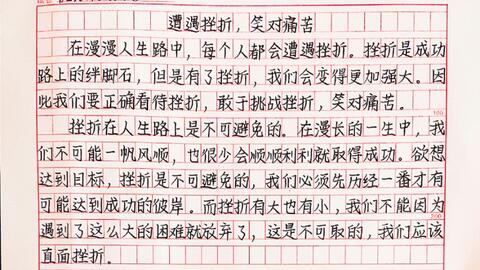 遭遇挫折，笑对痛苦
在漫漫人生路中，每个人都会遭遇挫折。挫折是成功
路上的绊脚石，但是有了挫折，我们会变得更加强大。因
此我们要正确看待挫折，敢于挑战挫折，笑对痛苦。
100
挫折在人生路上是不可避免的。在漫长的一生中，我
们不可能一帆风顺，也很少会顺顺利利就取得成功。欲想
达到目标，挫折是不可避免的，我们必须先历经一番才有
可能达到成功的彼岸。而挫折有大也有小，我们不能因为
200
遇到了这么大的困难就放弃了，这是不可取的，我们应该
直面挫折。